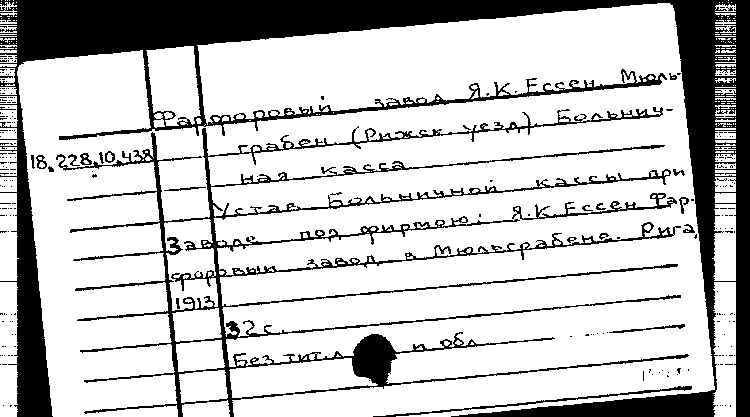 Фарфоровый завод Я.К.Ессен. Мюль-
18.228.10.438
грабен (Рижск. уезд). Больнич-
ная касса
Устав Больничной кассы при
Заводе под фирмою: Я.К.Ессен Фар-
форовый завод в Мюльграбене. Рига,
1913.
32 с.
Без тит.л п обл